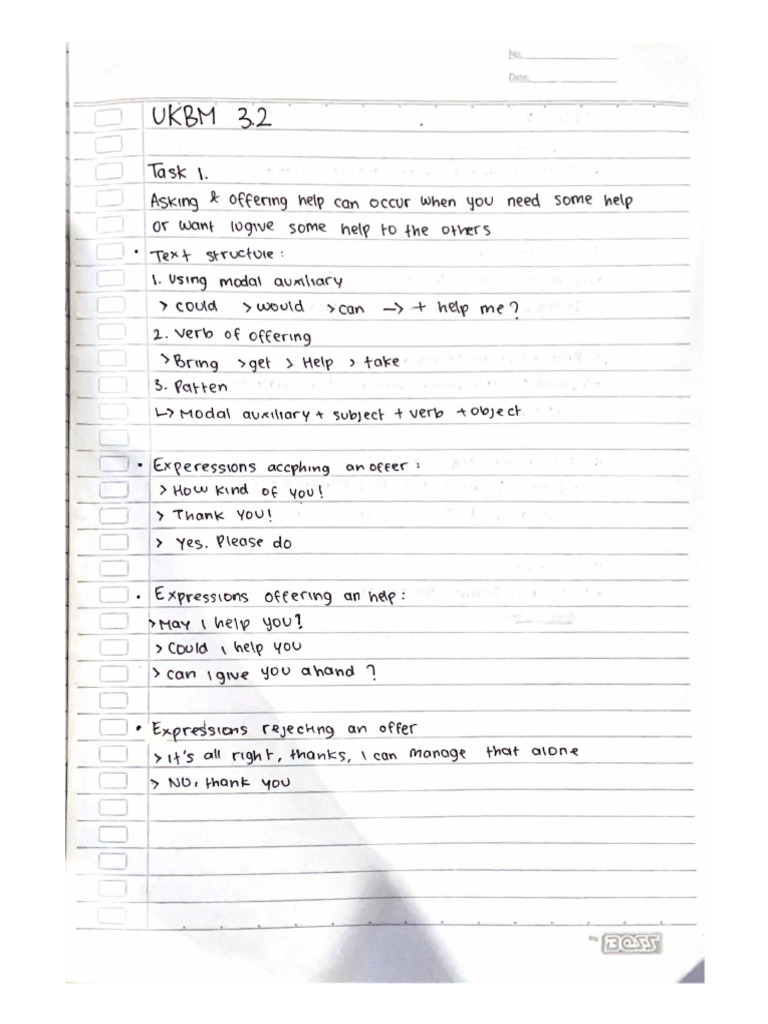 No.
Date:
UKBM 3.2
Task 1.
Asking & offering help can occur when you need some help
or want togive some help to the others
• Text structure :
1. Using modal auxiliary
> could > would > can —> + help me ?
2. Verb of offering
> Bring > get > Help > take
3. Patten
↳ Modal auxiliary + subject + verb + object
• Experessions accphing an offer :
> How kind of you!
> Thank you!
> Yes. Please do
• Expressions offering an help :
> May I help you?
> Could I help you
> Can I give you ahand ?
• Expressions rejecting an offer
> It's all right, thanks, I can manage that alone
> No, thank you
By BOSS